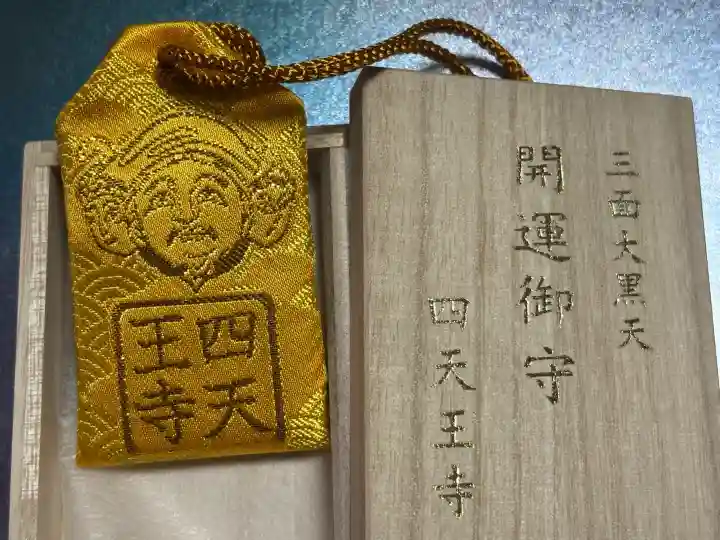 四天
王寺
三面大黒天
開運御守
四天王寺